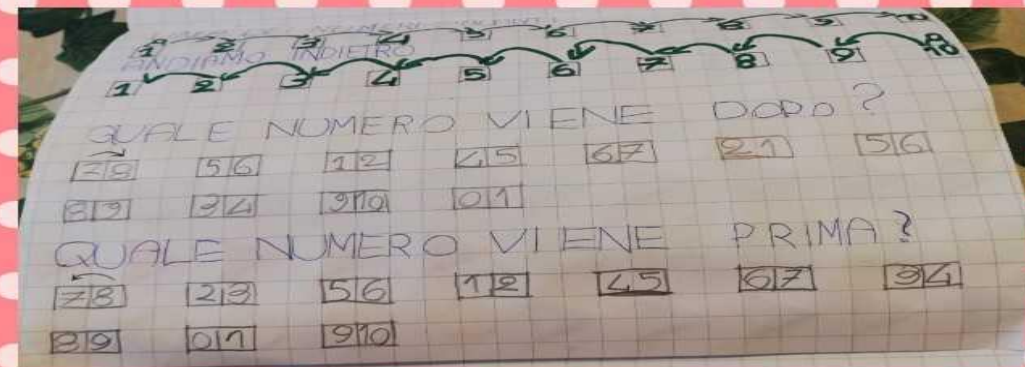 1 2 3 4 5 6 7 8 9 10
ANDIAMO INDIETRO
1 2 3 4 5 6 7 8 9 10
QUALE NUMERO VIENE DOPO?
78 56 12 45 67 21 56
89 34 910 01
QUALE NUMERO VIENE PRIMA?
78 23 56 12 45 67 34
89 01 910